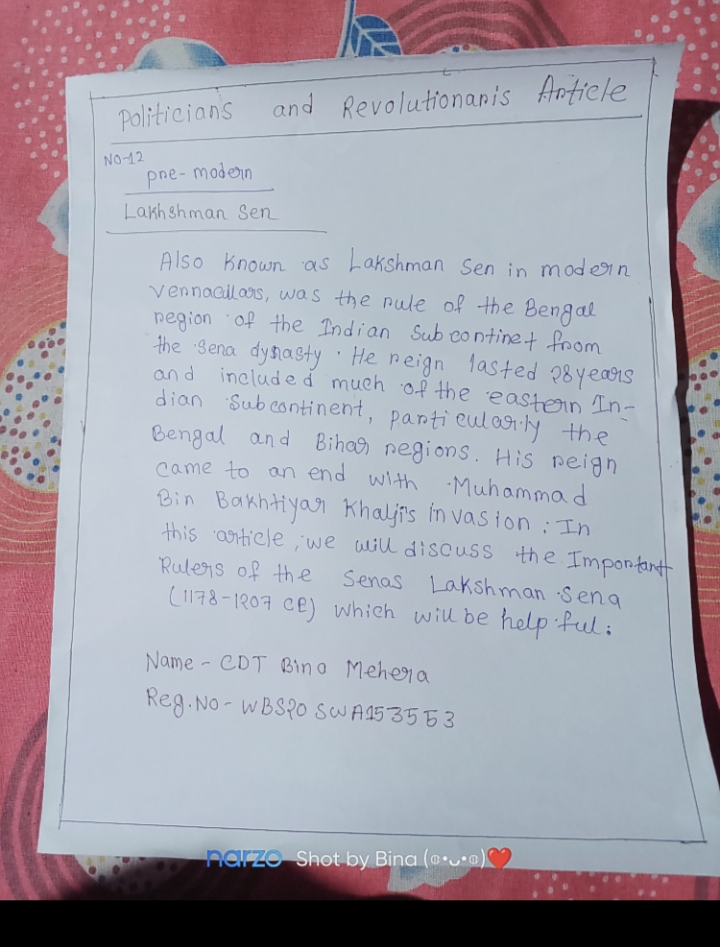 Politicians and Revolutionaris Article
NO-12
pre-modern
Lakhshman Sen
Also known as Lakshman Sen in modern
vernacullars, was the rule of the Bengal
region of the Indian Subcontinet from
the Sena dynasty. He reign lasted 28 years
and included much of the eastern In-
dian Subcontinent, particularly the
Bengal and Bihar regions. His reign
came to an end with Muhammad
Bin Bakhtiyar Khalji's invasion. In
this article, we will discuss the Important
Rulers of the Senas Lakshman Sena
(1178-1207 CE) which will be helpful.
Name - CDT Bina Mehera
Reg. No - WBS20 SWA153553
narzo Shot by Bina (ㆁ•ᴗ•ㆁ)❤️